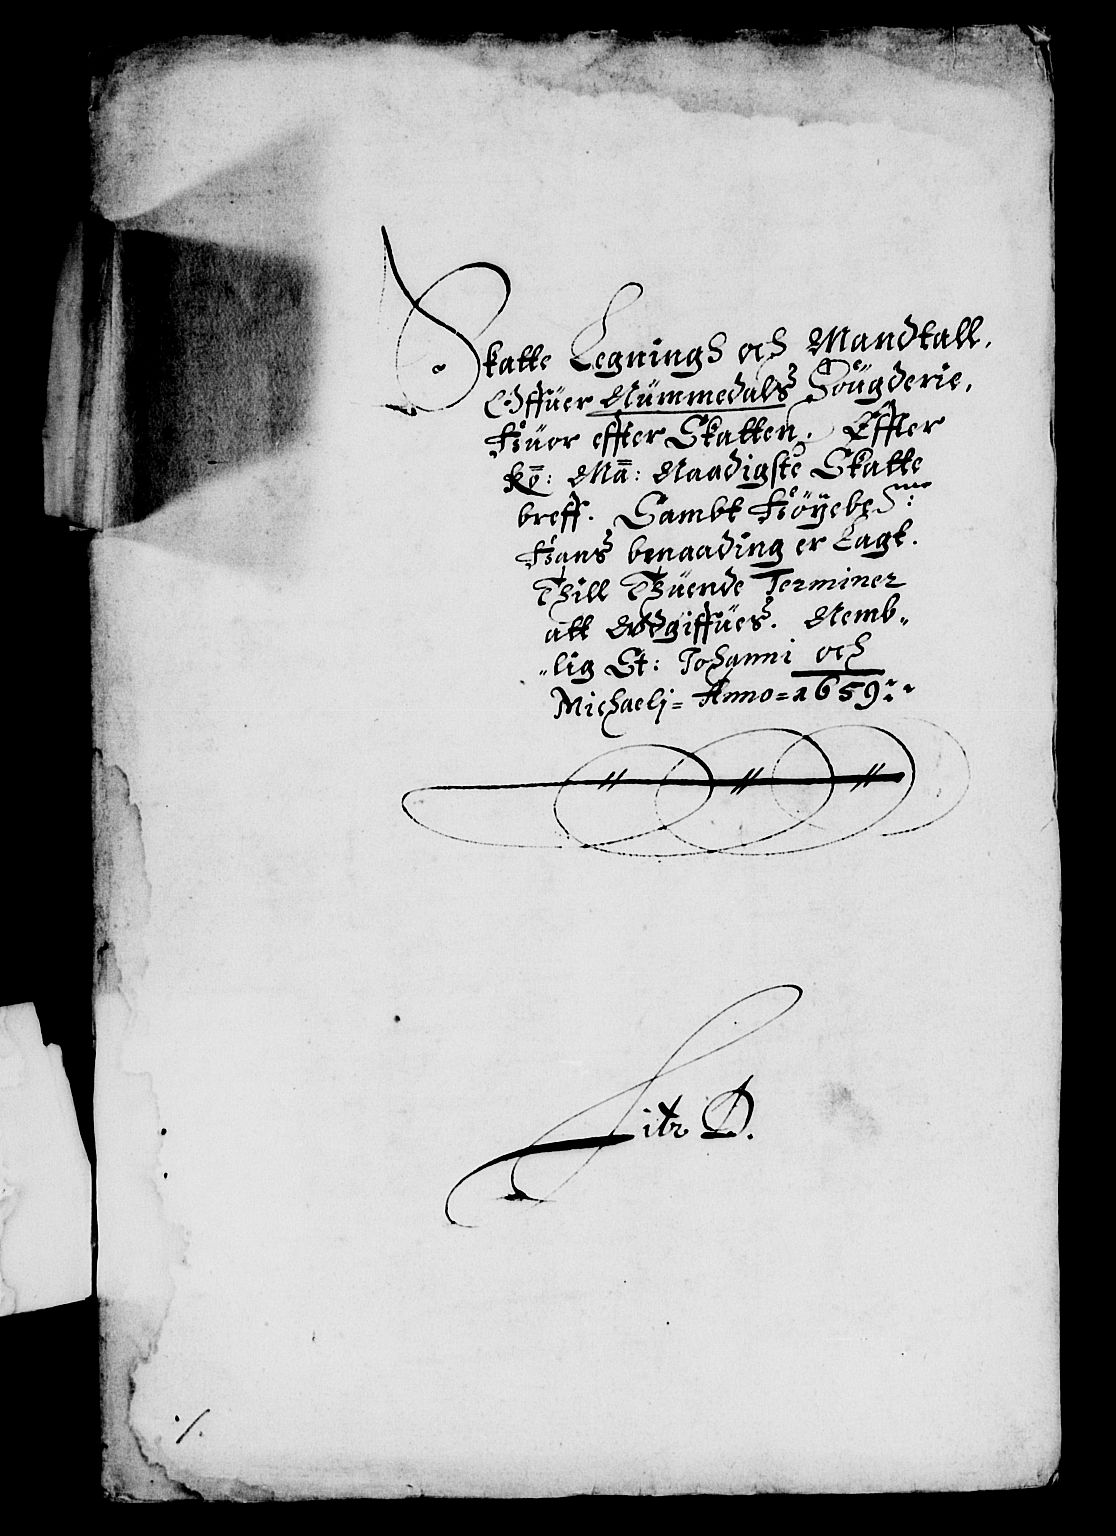 Skatte Legnings och Mandtall,
Offuer Nummedals Fougderie,
Huor effter Skatten, Effter
Kō: Mā: Naadigste Skatte
breff. Sambt Høyebe
Hans benaading er Lagt.
Thill Thuende Terminer
att Wdgiffues. Nemb„
„lig St: Johanni och
Michaelj= Anno=1659
Litr D.